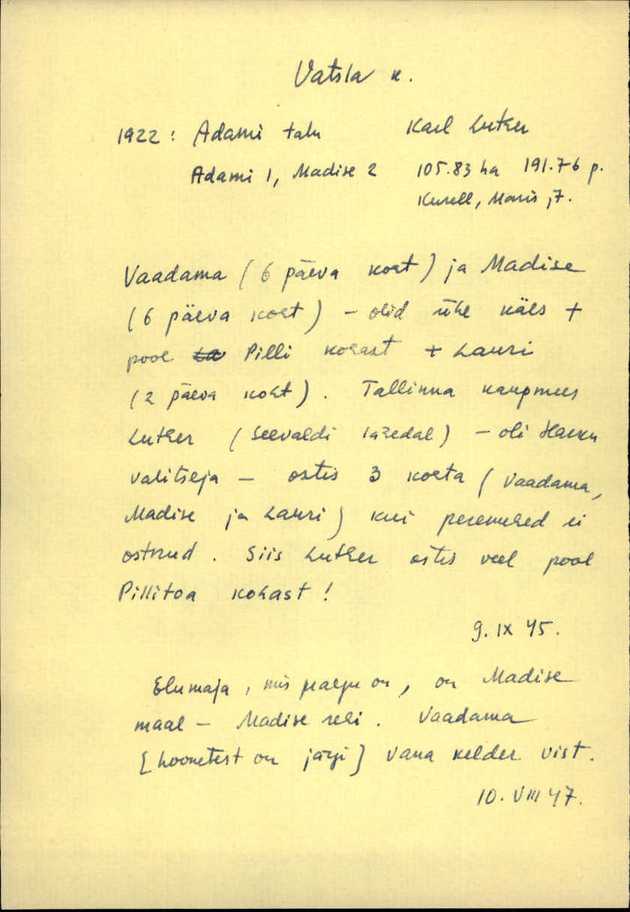 Vatsla k.
1922: Adami talu Karl Luther
Adami 1, Madise 2 105.83 ha 191.76 p.
Kurell, Moris, 7.
Vaadama (6 päeva koht) ja Madise
(6 päeva koht) – olid ühe käes +
pool Pilli kohast + Lauri
(2 päeva koht). Tallinna kaupmees
Luther (Seevaldi lähedal) – oli Harku
valitseja – ostis 3 kohta (Vaadama,
Madise ja Lauri) kui peremehed ei
ostnud. Siis Luther ostis veel pool
Pillitoa kohast!
9. IX 45.
Elumaja, mis praegu on, on Madise
maal – Madise
Vaadama
[hoonetest on järgi] vana kelder vist.
10. VIII 47.